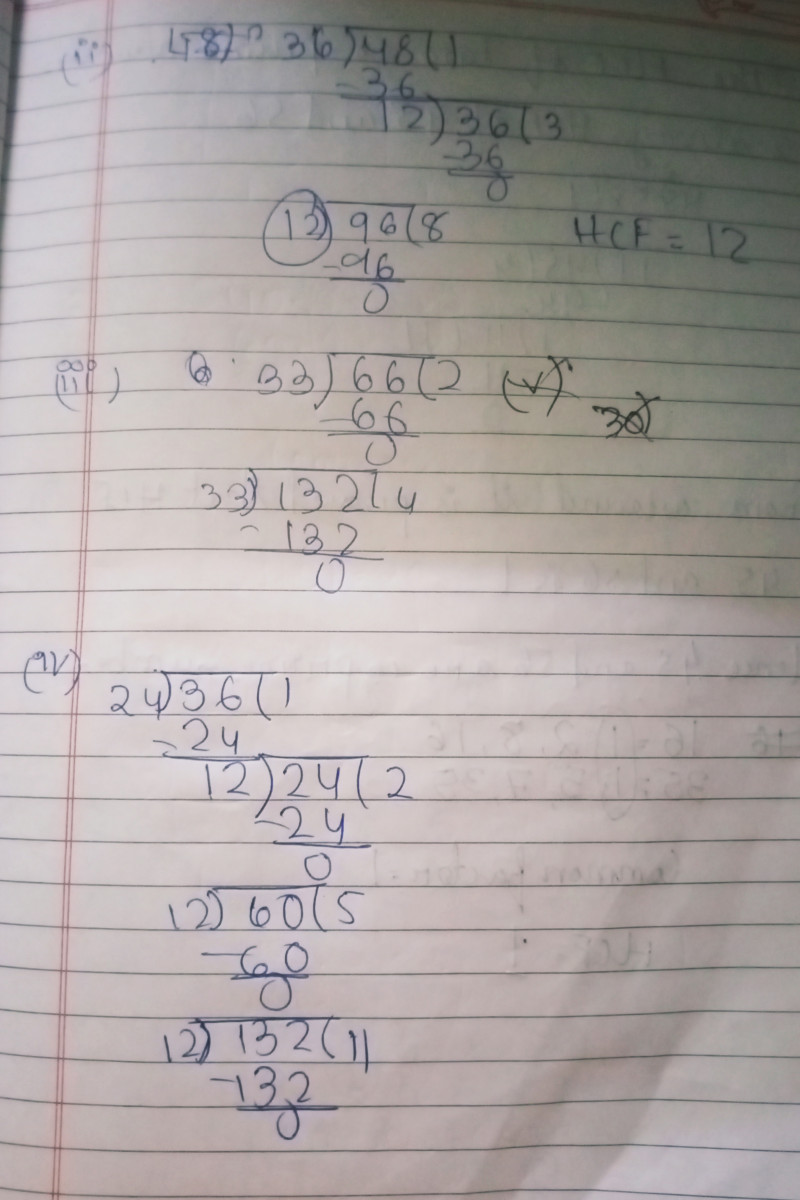 (ii) 36)48(1
-36
12)36(3
-36
0
12)96(8 HCF = 12
-96
0
(iii) 33)66(2
-66
0
33)132(4
-132
0
(iv)
24)36(1
-24
12)24(2
-24
0
12)60(5
-60
0
12)132(11
-132
0